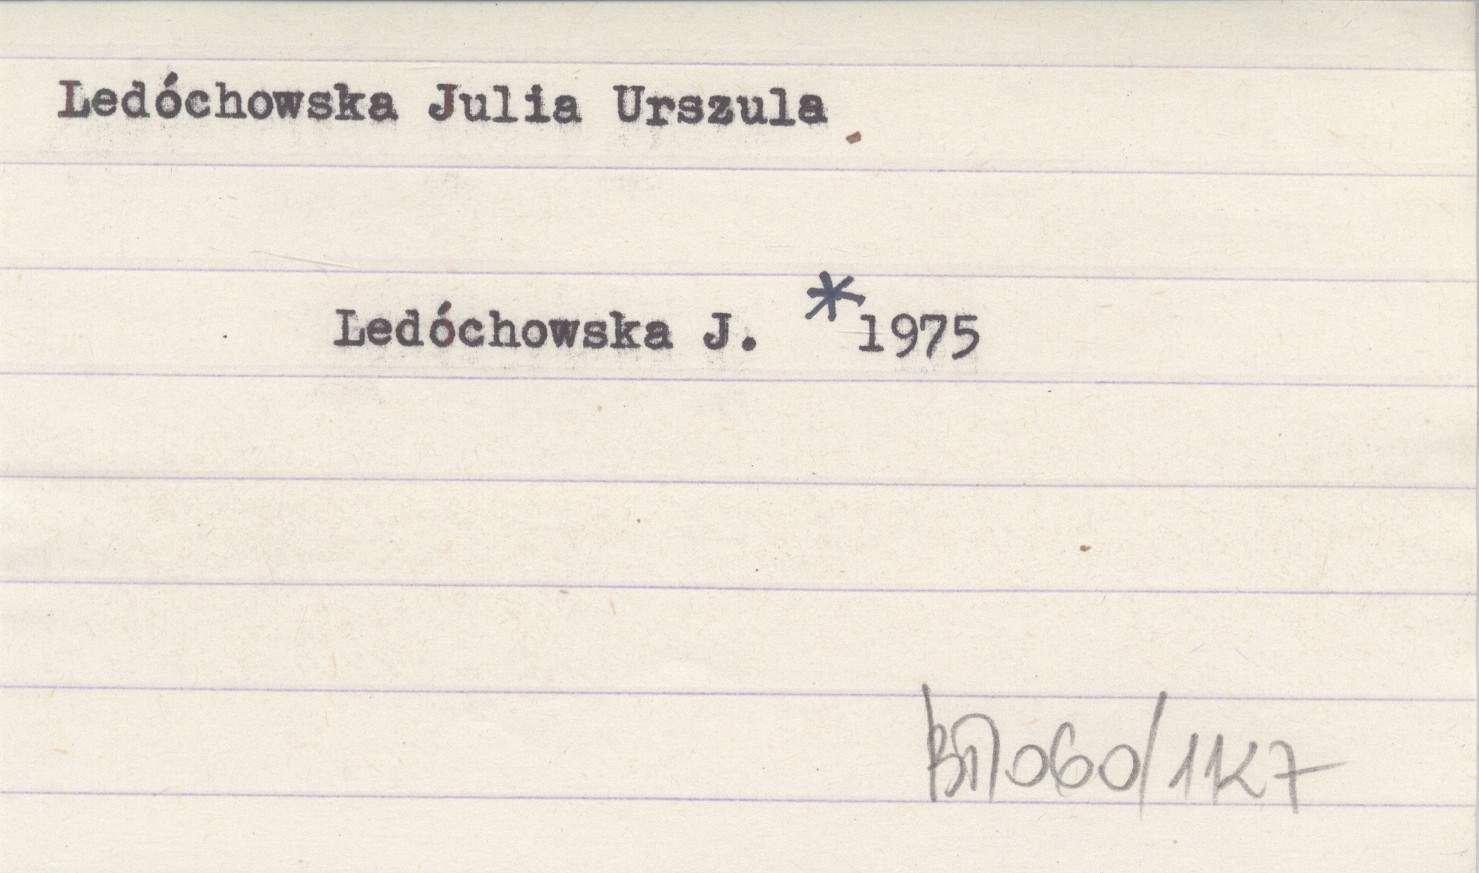 Ledóchowska Julia Urszula
Ledóchowska J. *1975
060/1K7